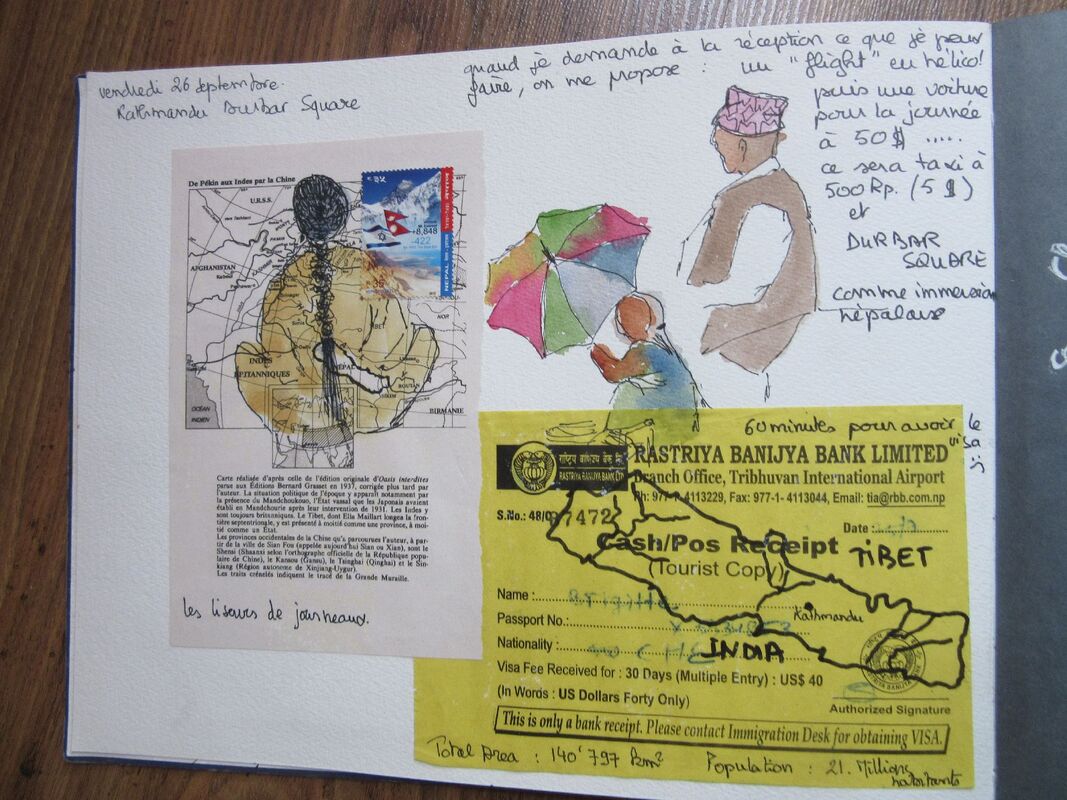 vendredi 26 septembre.
Kathmandu Durbar Square
quand je demande à la réception ce que je peux
faire, on me propose : un "flight" en hélico!
puis une voiture
pour la journée
à 50$ .....
ce sera taxi à
500 Rp. (5 $)
et
DURBAR
SQUARE
comme immersion
népalaise
De Pékin aux Indes par la Chine
U.R.S.S.
AFGHANISTAN
TIBET
NÉPAL
INDES
BRITANNIQUES
BOUTAN
SIKKIM
BIRMANIE
OCÉAN
INDIEN
+8,848
-422
35
NEPAL
Carte réalisée d'après celle de l'édition originale d'Oasis interdites
parue aux Éditions Bernard Grasset en 1937, corrigée plus tard par
l'auteur. La situation politique de l'époque y apparaît notamment par
la présence du Mandchoukouo, l'État vassal que les Japonais avaient
établi en Mandchourie après leur intervention de 1931. Les Indes y
sont toujours britanniques. Le Tibet, dont Ella Maillart longea la fron-
tière septentrionale, y est présenté à moitié comme une province, à moi-
tié comme un État.
Les provinces occidentales de la Chine qu'a parcourues l'auteur, à par-
tir de la ville de Sian Fou (appelée aujourd'hui Sian ou Xian), sont le
Shensi (Shaanxi selon l'orthographe officielle de la République popu-
laire de Chine), le Kansou (Gansu), le Tsinghai (Qinghai) et le Sin-
kiang (Région autonome de Xinjiang-Uygur).
Les traits crénelés indiquent le tracé de la Grande Muraille.
les liseurs de journeaux.
60 minutes pour avoir le
visa
राष्ट्रिय बाणिज्य बैंक लि.
RASTRIYA BANIJYA BANK LTD.
RASTRIYA BANIJYA BANK LIMITED
Branch Office, Tribhuvan International Airport
Ph: 977-1-4113229, Fax: 977-1- 4113044, Email: tia@rbb.com.np
S.No.: 48/0 37472
Date :
Cash/Pos Receipt
TIBET
(Tourist Copy)
Name : Brigitte
Kathmandu
Passport No.:
Nationality :
INDIA
Visa Fee Received for : 30 Days (Multiple Entry) : US$ 40
(In Words : US Dollars Forty Only)
Authorized Signature
This is only a bank receipt. Please contact Immigration Desk for obtaining VISA.
Total area : 140'797 km²
Population : 21. Millions
habitants